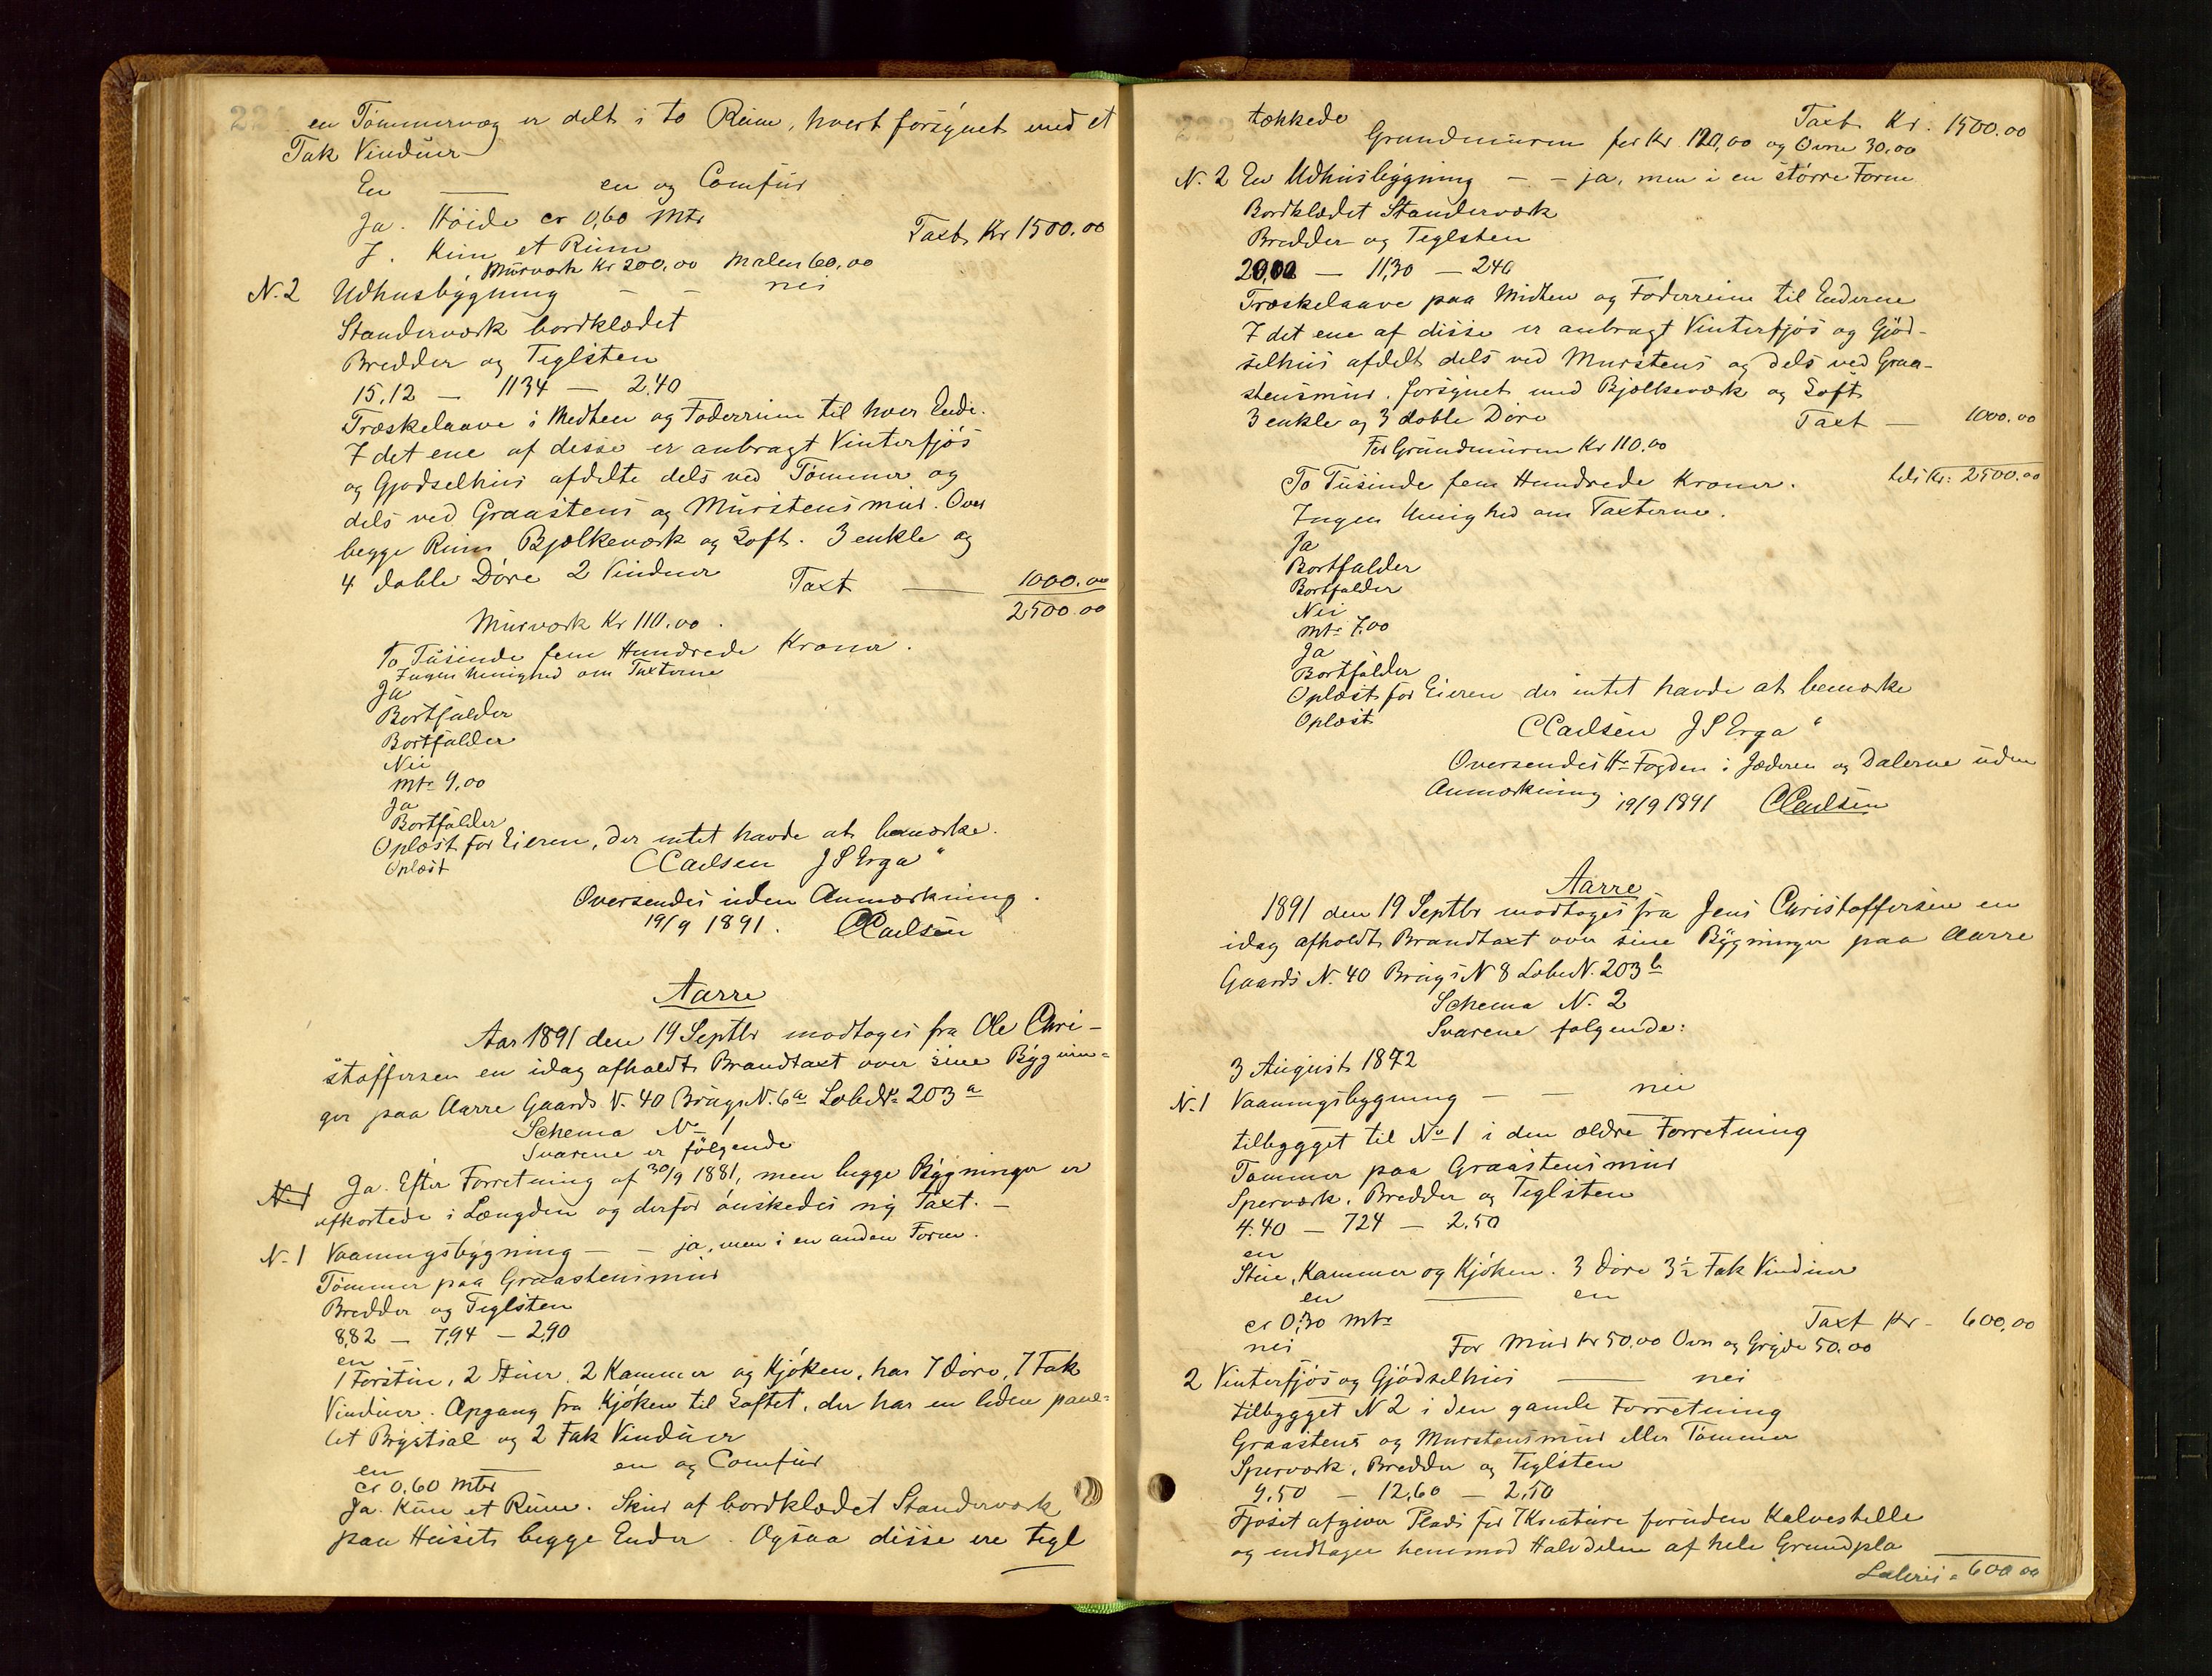 en Tømmervæg er delt i to Rum, hvert forsynet med et
Tak Vinduer
En — en og Comfur
Ja. Høide er 0,60 Mtr
J. Kun et Rum Taxt Kr 1500.00
Murværk Kr 200,00 Malen 60,00
N. 2 Udhusbygning — — nei
Standerværk bordklædet
Bredder og Teglsten
15,12 — 1134 — 2,40
Træskelaave i Medten og Foderrum til hver Ende.
I det ene af disse er anbragt Vinterfjøs
og Gjødselhus afdelte dels ved Tømmer og
dels ved Graastens og Murstensmur. Over
begge Rum Bjælkeværk og Loft. 3 enkle og
4 doble Døre 2 Vinduer Taxt — 1000.00
2500.00
Murværk Kr 110.00.
To Tusinde fem Hundrede Kroner.
Ingen Uenighed om Taxterne
Ja
Bortfalder
Bortfalder
Nei
Mtr 9,00
Ja
Bortfalder
Oplæst for Eieren, der intet havde at bemærke.
Oplæst CCarlsen J S Erga "
Oversendes uden Anmærkning.
19/9 1891. CCarlsen
Aarre
Aar 1891 den 19 Septbr modtoges fra Ole Chri-
stoffersen en idag afholdt Brandtaxt over sine Bygnin=
ger paa Aarre Gaards N. 40 Brugs N. 6a Løbe N. 203 a
Schema No 1
Svarene er følgende
N. 1 Ja. Efter Forretning af 30/9 1881, men begge Bygninger er
afkortede i Længden og derfor ønskedes ny Taxt. —
N. 1 Vaaningsbygning — — ja, men i en anden Form.
Tømmer paa Graastensmur
Bredder og Teglsten
8,82 — 7,94 — 2,90
en
1 Forstue, 2 Stuer, 2 Kammer og Kjøken, har 7 Døre, 7 Fak
Vinduer. Opgang fra Kjøken til Loftet, der har en liden pane=
let Brystsal og 2 Fak Vinduer
en — en og Comfur
er 0,60 Mtr
Ja. Kun et Rum. Skur af bordklædet Standerværk
paa Husets begge Ender. Ogsaa disse ere tegl
tækkede Taxt Kr. 1500.00
Grundmuren for Kr. 120,00 og Ovne 30.00
N. 2 En Udhusbygning — — ja, men i en større Form
Bordklædet Standerværk
Bredder og Teglsten
20,02 — 11,30 — 240
Træskelaave paa Midten og Foderrum til Enderne
I det ene af disse er anbragt Vinterfjøs og Gjød-
selhus afdelt dels ved Murstens og dels ved Graa-
stensmur, forsynet med Bjælkeværk og Loft
3 enkle og 3 doble Døre Taxt — 1000.00
For Grundmuren Kr 110.00
To Tusinde fem Hundrede Kroner. tils Kr: 2500.00
Ingen Uenighed om Taxterne.
Ja
Bortfalder
Bortfalder
Nei
Mtr 7,00
Ja
Bortfalder
Oplæst for Eieren der intet havde at bemærke
Oplæst CCarlsen J S Erga "
Oversendes Hr Fogden i Jæderen og Dalerne uden
Anmærkning. 19/9 1891 CCarlsen
Aarre
1891 den 19 Septbr modtoges fra Jens Christoffersen en
idag afholdt Brandtaxt over sine Bygninger paa Aarre
Gaards N. 40 Brugs N 8 Løbe N. 203 b
Schema N. 2
Svarene følgende:
3 August 1872
N. 1 Vaaningsbygning — — nei
tilbygget til No 1 i den ældre Forretning
Tømmer paa Graastensmur
Sperværk, Bredder og Teglsten
4.40 — 724 — 2.50
en
Stue, Kammer og Kjøken. 3 Døre 3½ Fak Vinduer
en — en
er 0,30 Mtr Taxt Kr - 600,00
nei For Mur Kr 50.00 Ovn og Gryde 50.00
2 Vinterfjøs og Gjødselhus — nei
tilbygget N 2 i den gamle Forretning
Graastens og Murstensmur eller Tømmer
Sperværk, Bredder og Teglsten
9,50 — 12,60 — 2,50
Fjøset afgiver Plads for 7 Kreature foruden Kalvestelle
og indtager henimod Halvdelen af hele Grundpla
Lateris = 600 00